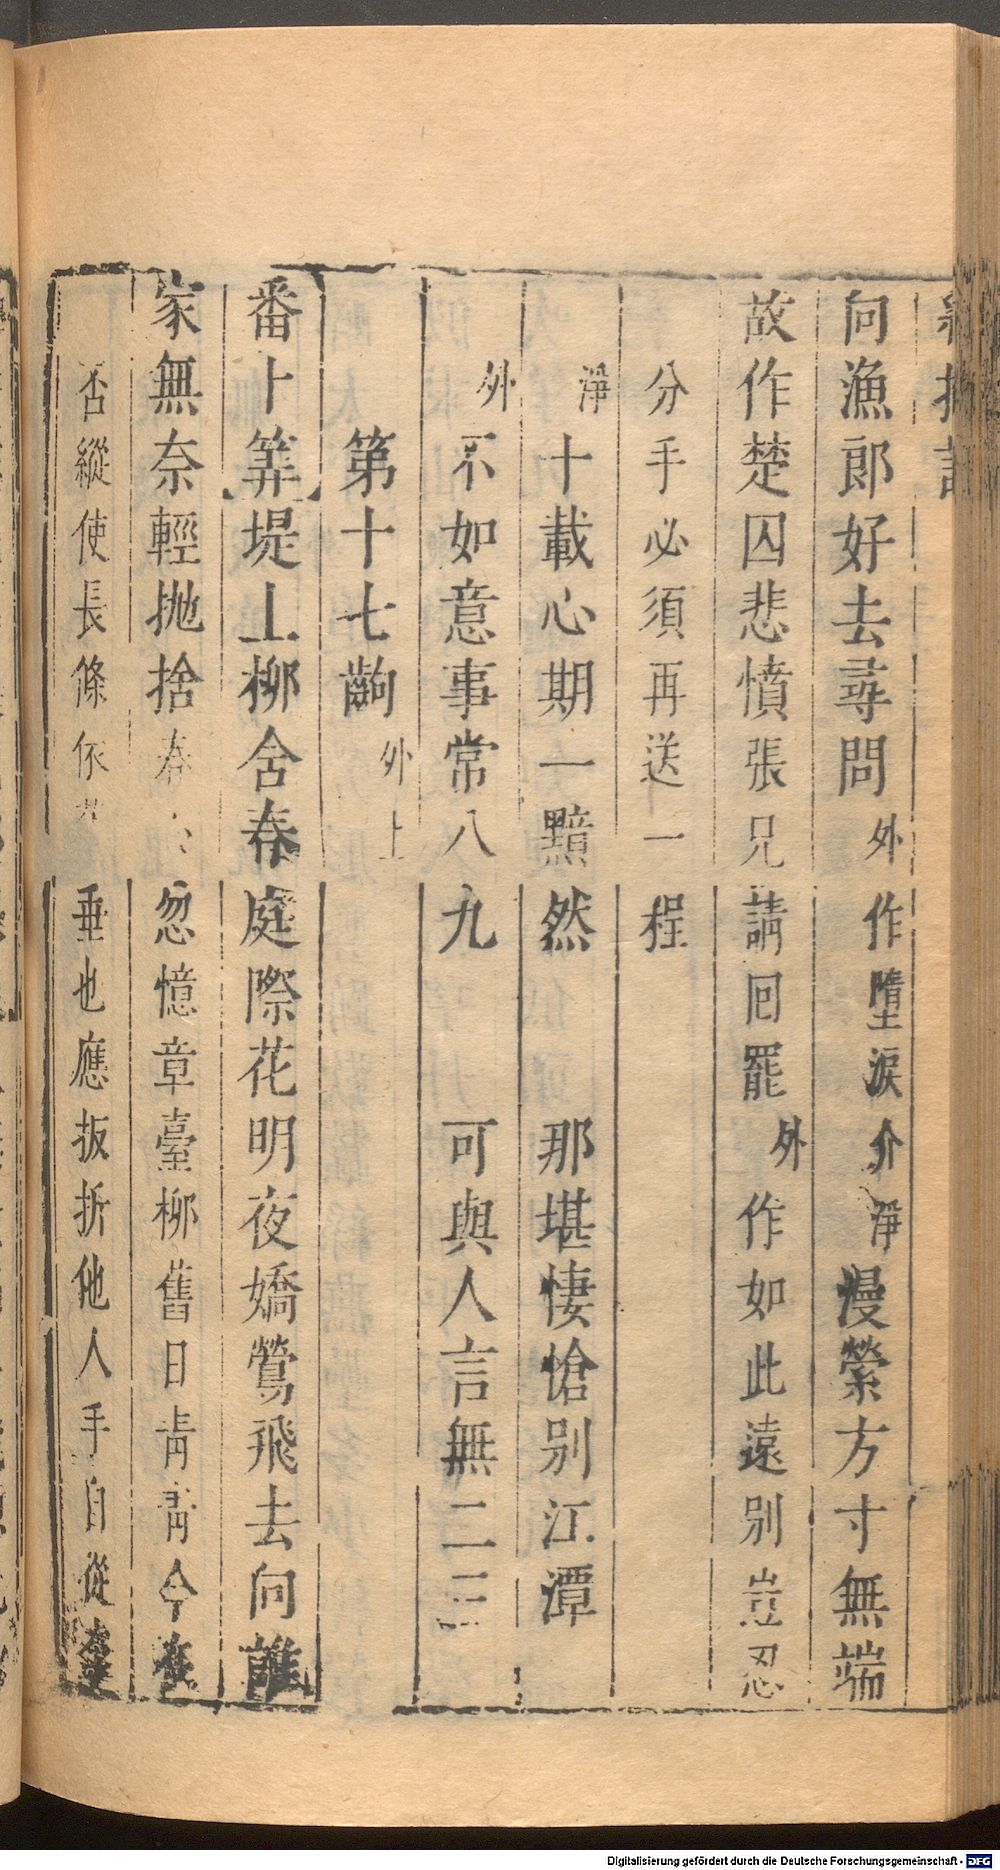 向漁郎好去尋問外作墮淚介淨漫縈方寸無端
故作楚囚悲憤張兄請回罷外作如此遠別豈忍
分手必須再送一程
淨十載心期一黯然 那堪悽愴別江潭
外不如意事常八九 可與人言無二三
第十七齣外上
番卜筭堤上柳舍春庭際花明夜嬌鶯飛去向誰
家無奈輕抛捨 忽憶章臺柳舊日靑靑今在
否縱使長條依 垂也應扳折他人手自從
Digitalisierung gefördert durch die Deutsche Forschungsgemeinschaft - DFG